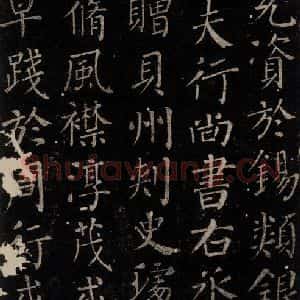 資於錫類銀
夫行尚書右丞
贈貝州刺史
脩風襟淳茂
早踐於周行
Shufawang.CN